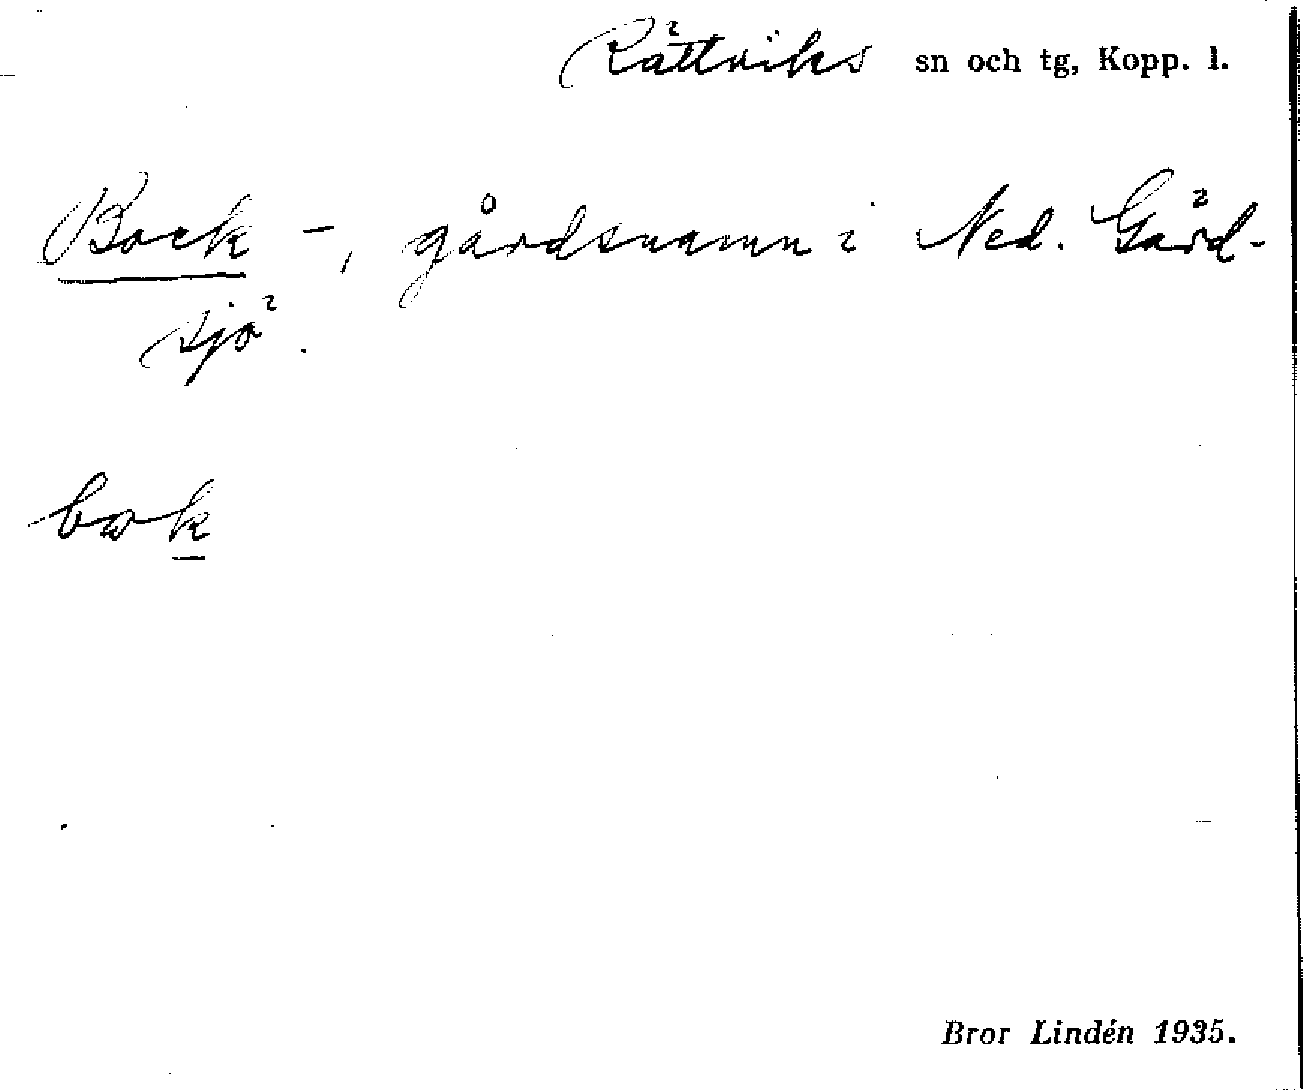 Rättviks sn och tg, Kopp. l.
Bock -, gårdsnamn i Ned. Gärd-
sjö.
bωk
Bror Lindén 1935.